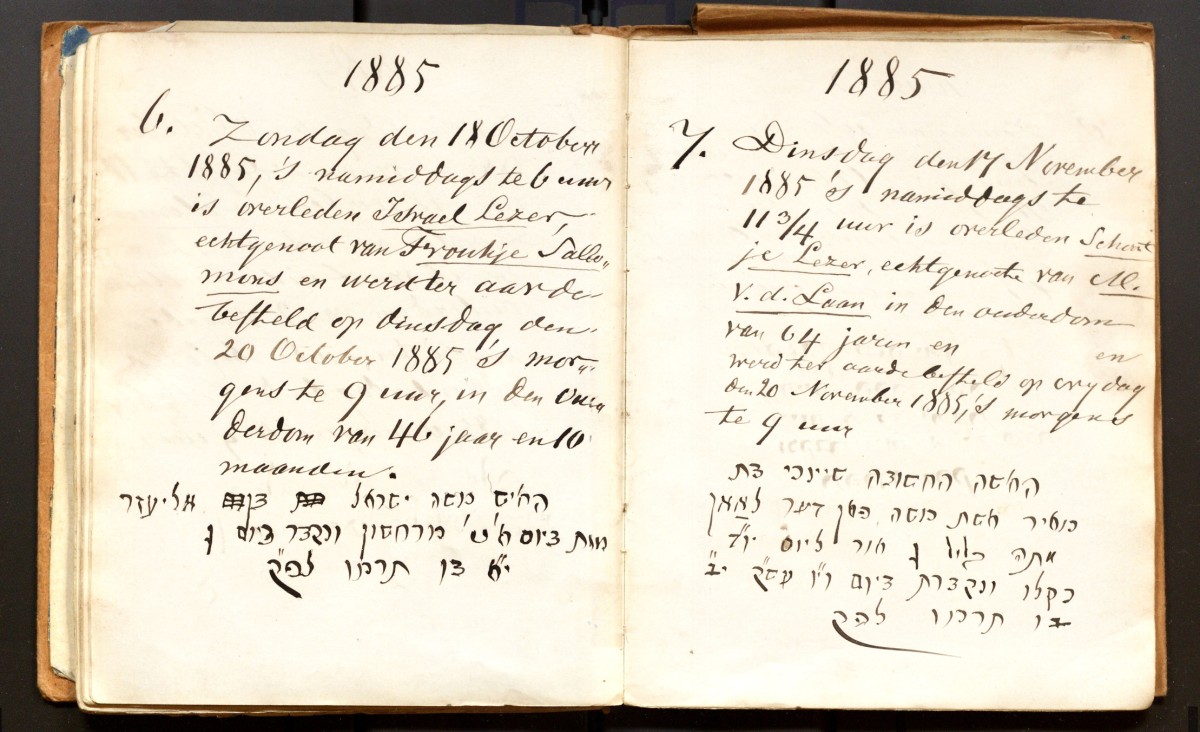 1885
6. Zondag den 18 October
1885, 's namiddags te 6 uur
is overleden Israel Lezer,
echtgenoot van Froukje Sallo„
mons en werd ter aarde
besteld op dinsdag den
20 October 1885 's mor„
gens te 9 uur, in den ou„
derdom van 46 jaar en 10
maanden.
האיש משה ישראל אליעזר
מת ביום א' מרחשון ונקבר ביום ג
י"א בו תרמו לפק
1885
7. Dinsdag den 17 November
1885 's namiddags te
11 3/4 uur is overleden Schoont
je Lezer, echtgenoote van M.
v. d. Laan in den ouderdom
van 64 jaren en en
werd ter aarde besteld op vrydag
den 20 November 1885, 's morgens
te 9 uur
האשה החשובה שיינכי בת
מאיר אשת משה דער לאאן
מתה בליל ג אור ליום י"ד
כסלו ונקברת ביום ו' עש"ק י"ב
בו תרמו לפק